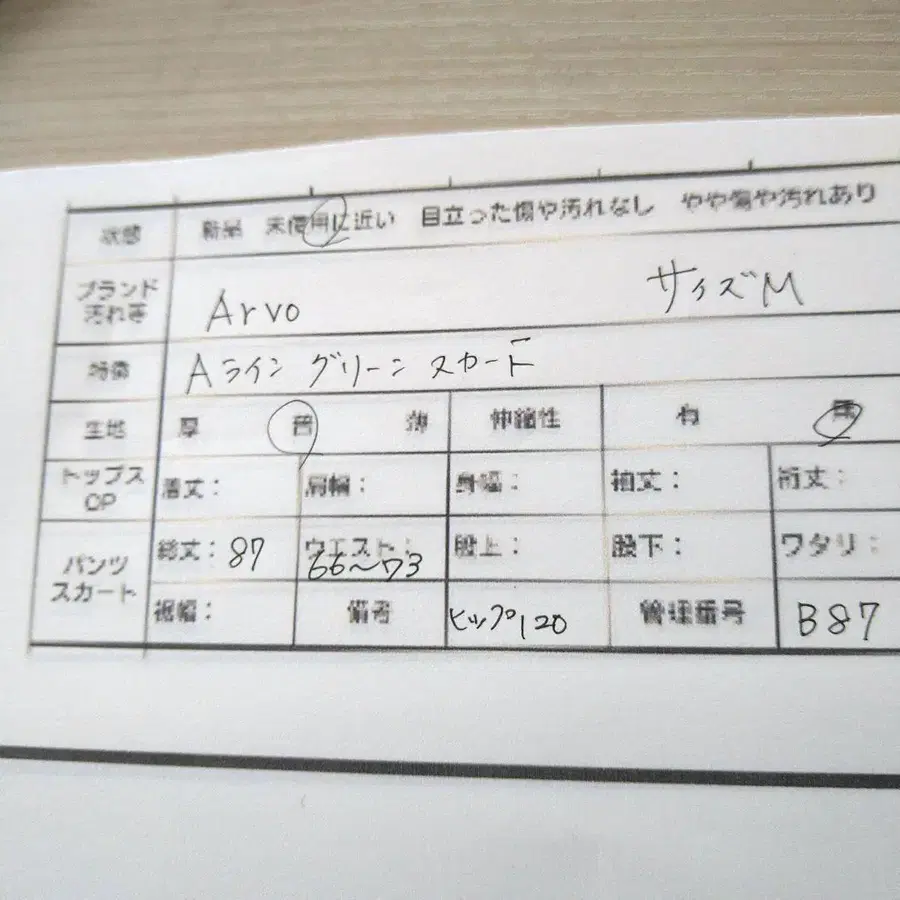 状態 新品 未使用に近い 目立った傷や汚れなし やや傷や汚れあり
ブランド
汚れ等 Arvo サイズM
特徴 Aライン グリーン スカート
生地 厚 普 薄 伸縮性 有 無
トップス
OP 着丈: 肩幅: 身幅: 袖丈: 裄丈:
パンツ
スカート 総丈: 87 ウエスト: 66〜73 股上: 股下: ワタリ:
裾幅: 備考 ヒップ120 管理番号 B87